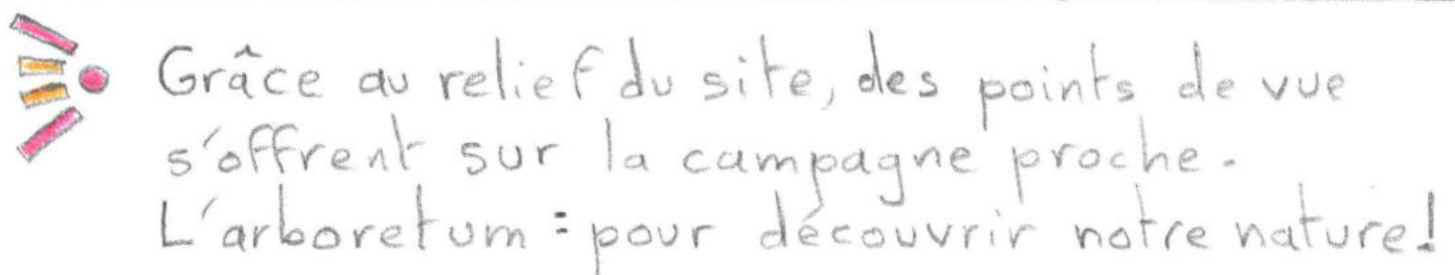 Grâce au relief du site, des points de vue
s'offrent sur la campagne proche.
L'arboretum : pour découvrir notre nature!